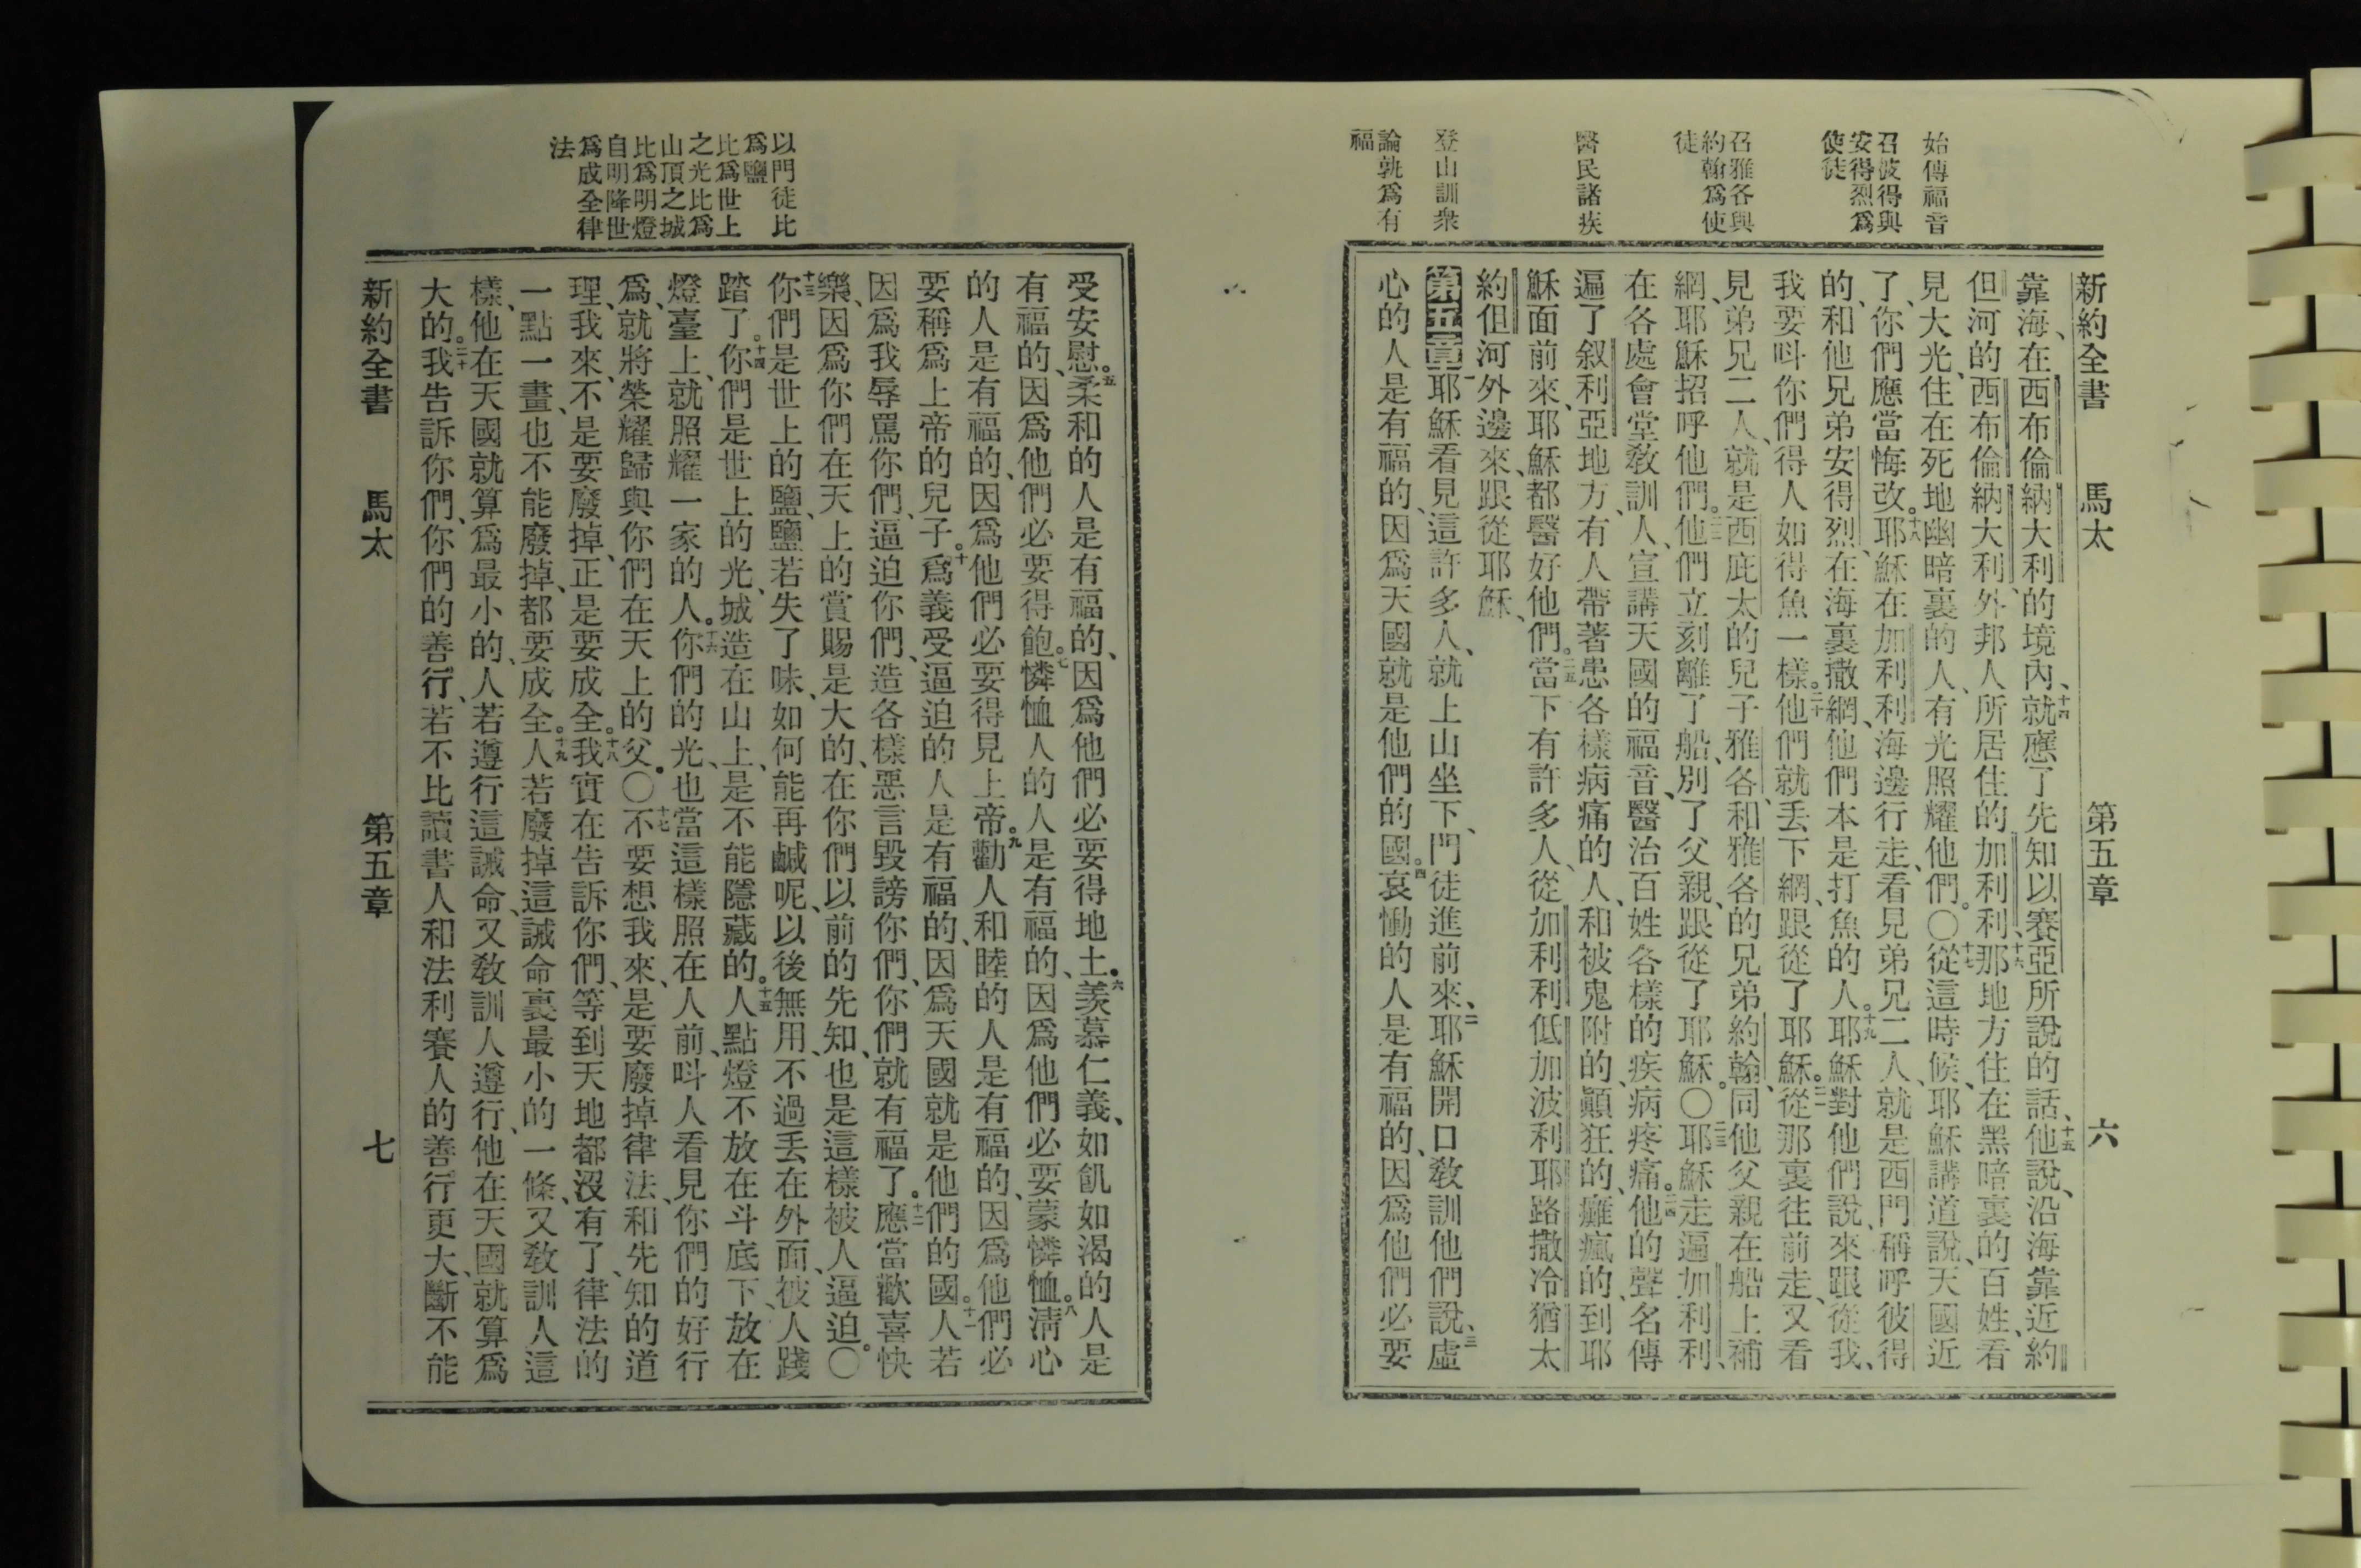 始傳福音
召彼得與
安得烈爲
使徒
召雅各與
約翰爲使
徒
醫民諸疾
登山訓衆
論孰爲有
福
新約全書 馬太 第五章 六
靠海、在西布倫納大利的境內、十四就應了先知以賽亞所說的話、十五他說、沿海靠近約
但河的西布倫納大利、外邦人所居住的加利利、十六那地方住在黑暗裏的百姓、看
見大光、住在死地幽暗裏的人、有光照耀他們。〇十七從這時候、耶穌講道說、天國近
了、你們應當悔改。十八耶穌在加利利海邊行走、看見弟兄二人、就是西門、稱呼彼得
的、和他兄弟安得烈、在海裏撒網、他們本是打魚的人。十九耶穌對他們說、來跟從我、
我要呌你們得人如得魚一樣。二十他們就丢下網、跟從了耶穌。二一從那裏往前走、又看
見弟兄二人、就是西庇太的兒子雅各、和雅各的兄弟約翰、同他父親在船上補
網、耶穌招呼他們。二二他們立刻離了船、別了父親、跟從了耶穌。〇二三耶穌走遍加利利、
在各處會堂敎訓人、宣講天國的福音、醫治百姓各樣的疾病疼痛。二四他的聲名傳
遍了叙利亞地方、有人帶著患各樣病痛的人、和被鬼附的、顚狂的、癱瘋的、到耶
穌面前來、耶穌都醫好他們。二五當下有許多人、從加利利低加波利耶路撒冷猶太
約但河外邊來、跟從耶穌、
第五章一耶穌看見這許多人、就上山坐下、門徒進前來、二耶穌開口敎訓他們說、三虛
心的人是有福的、因爲天國就是他們的國。四哀慟的人是有福的、因爲他們必要
受安慰。五柔和的人是有福的、因爲他們必要得地土。六羨慕仁義、如飢如渴的人是
有福的、因爲他們必要得飽。七憐恤人的人是有福的、因爲他們必要蒙憐恤。八淸心
的人是有福的、因爲他們必要得見上帝。九勸人和睦的人是有福的、因爲他們必
要稱爲上帝的兒子。十爲義受逼迫的人是有福的、因爲天國就是他們的國。十一人若
因爲我辱罵你們、逼迫你們、造各樣惡言毀謗你們、你們就有福了。十二應當歡喜快
樂、因爲你們在天上的賞賜是大的、在你們以前的先知、也是這樣被人逼迫。〇
十三你們是世上的鹽、鹽若失了味、如何能再鹹呢、以後無用、不過丢在外面、被人踐
踏了。十四你們是世上的光、城造在山上、是不能隱藏的。十五人點燈不放在斗底下、放在
燈臺上、就照耀一家的人。十六你們的光、也當這樣照在人前、呌人看見你們的好行
爲、就將榮耀歸與你們在天上的父。〇十七不要想我來、是要廢掉律法、和先知的道
理、我來、不是要廢掉、正是要成全。十八我實在告訴你們、等到天地都沒有了、律法的
一點一畫、也不能廢掉、都要成全。十九人若廢掉這誡命裏最小的一條、又敎訓人這
樣、他在天國就算爲最小的、人若遵行這誡命、又敎訓人遵行、他在天國就算爲
大的。二十我告訴你們、你們的善行、若不比讀書人和法利賽人的善行更大、斷不能
新約全書 馬太 第五章 七
以門徒比
爲鹽
比爲世上
之光比爲
山頂之城
比爲明燈
自明降世
爲成全律
法